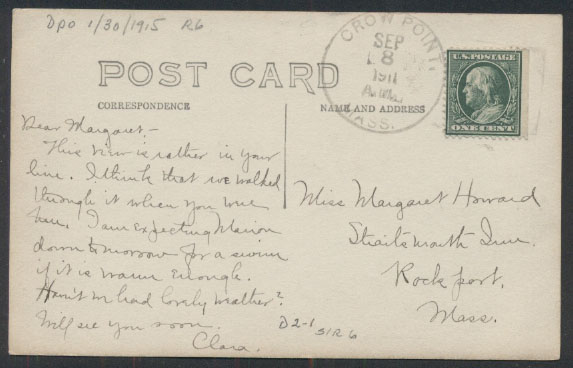 Dpo 1/30/1915 R6
CROW POINT,
SEP
8
1911
A.M.
MASS.
U.S. POSTAGE
ONE CENT
POST CARD
CORRESPONDENCE
NAME AND ADDRESS
Dear Margaret, -
This view is rather in your
line. I think that we walked
through it when you were
here. I am expecting Marion
down tomorrow for a swim
if it is warm enough.
Haven't we had lovely weather?
Will see you soon.
Clara.
Miss Margaret Howard
Straitsmouth Inn.
Rockport,
Mass.
D2-1
S1R6